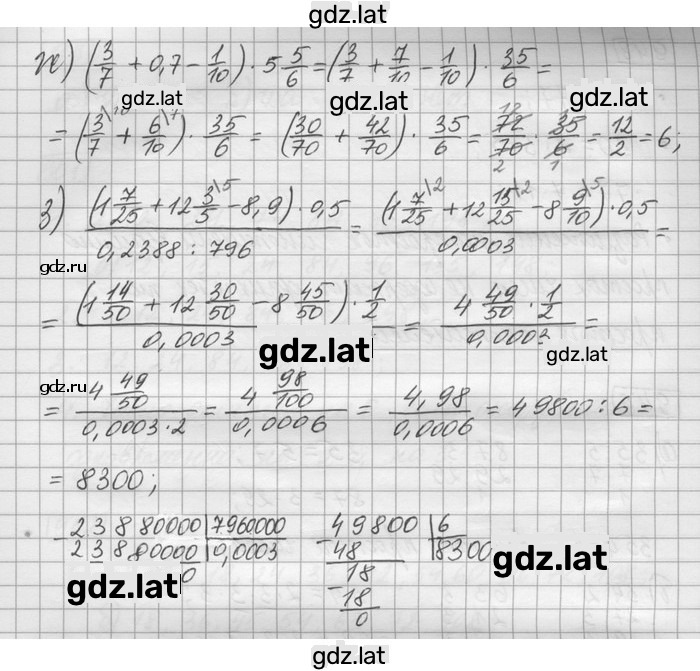 gdz.lat
ж) (3/7 + 0,7 − 1/10) · 5 5/6 = (3/7 + 7/10 − 1/10) · 35/6 =
gdz.lat gdz.lat gdz.lat
= (3/7 \10 + 6/10 \7) · 35/6 = (30/70 + 42/70) · 35/6 = 72/70 · 35/6 = 12/2 = 6;
з) (1 7/25 + 12 3/5 \5 − 8,9) · 0,5 / 0,2388 : 796 = (1 7/25 \2 + 12 15/25 \2 − 8 9/10 \5) · 0,5 / 0,0003 =
gdz.lat
= (1 14/50 + 12 30/50 − 8 45/50) · 1/2 / 0,0003 = 4 49/50 · 1/2 / 0,0003 =
gdz.lat gdz.lat
= 4 49/50 / 0,0003 · 2 = 4 98/100 / 0,0006 = 4,98 / 0,0006 = 49800 : 6 =
gdz.lat
= 8300;
− 23880000 | 7960000
23880000 | 0,0003
0
− 49800 | 6
48 | 8300
− 18
18
0
gdz.lat gdz.lat
gdz.lat